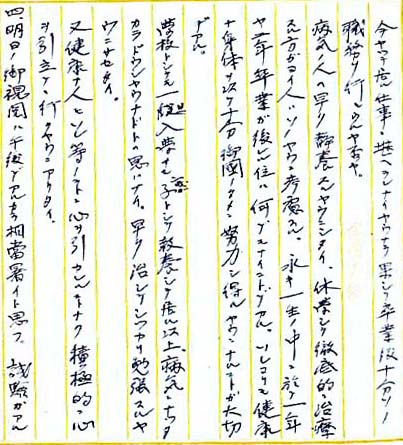 今ヤッテ居ル仕事ニ堪ヘラレナイヤウナ者ガ果シテ卒業後十分ソノ
職務ヲ何シ得ルヤ否ヤ。
病気ノ人ハ早ク静養スルヤウニシタイ、休学シテ徹底的ニ治療
スル方ガヨイ人ハソノヤウニ考慮スル。永キ一生ノ中ニ於テ一年
ヤ二年卒業ガ後レル位ハ何デモナイコトデアル。ソレヨリモ健康
ナ身体ヲ以テ十分御国ノタメニ努力シ得ルヤウニナルコトガ大切
デアル。
学校トシテモ一旦入学サセ子トシテ教養シテ居ル以上、病気ニナッタ
カラドウシヤウナドトハ思ハナイ。早ク治シテシッカリ勉強スルヤ
ウニサセタイ。
又健康ナ人ヒトシ等ノコトニ心ヲ引カレルコトナク積極的ニ心
ヲ引立テテ行クヤウニアリタイ。
四、明日ノ御視閲ハ午後デアルカラ相当暑イト思フ。 試験ガアル